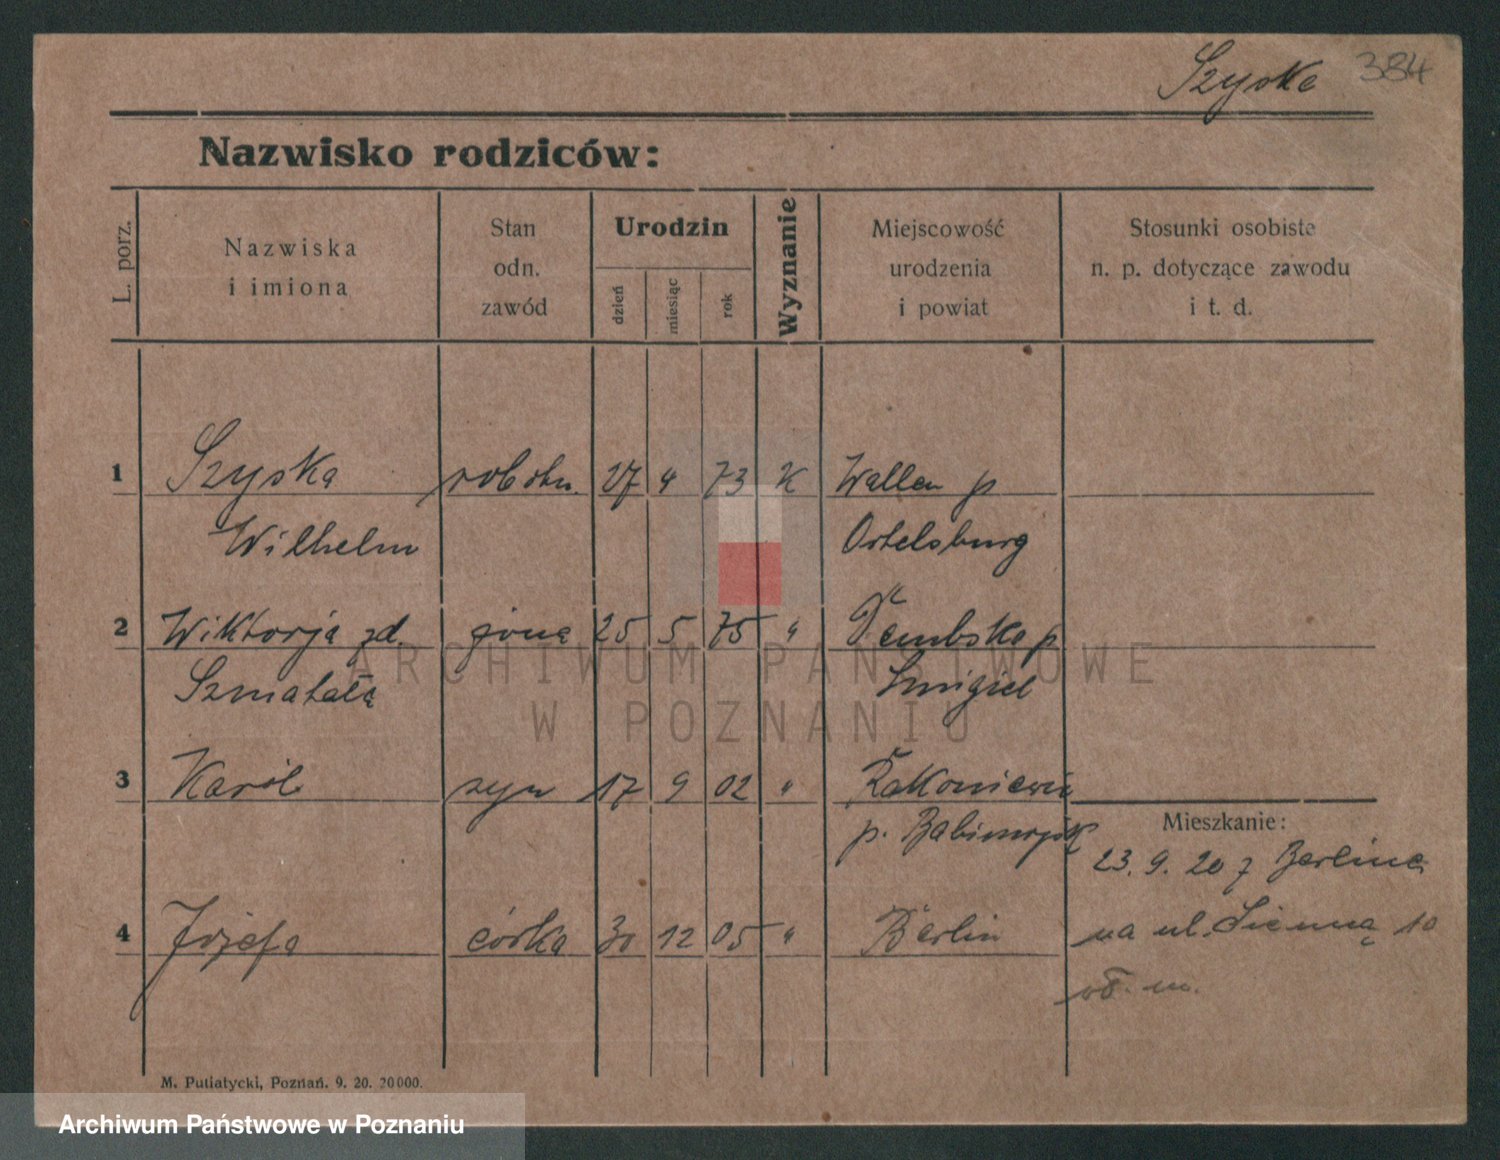 Szyske 384
Nazwisko rodziców:
L. porz.
Nazwiska
i imiona
Stan
odn.
zawód
Urodzin
dzień
miesiąc
rok
Wyznanie
Miejscowość
urodzenia
i powiat
Stosunki osobiste
n. p. dotyczące zawodu
i t. d.
1 Szyska robotn. 27 4 73 K Wallen p
Wilhelm Ortelsburg
2 Wiktorja zd. żona 25 5 75 "
Szmatała Śmigiel
3 Karól syn 17 9 02 " Rakoniewice
p. Babimojsk
Mieszkanie:
23. 9. 20 z Berlina
4 Józefa córka 30 12 05 " Berlin
na ul. Sienną 10
M. Putiatycki, Poznań. 9. 20. 20000.
ARCHIWUM PAŃSTWOWE
W POZNANIU
Archiwum Państwowe w Poznaniu